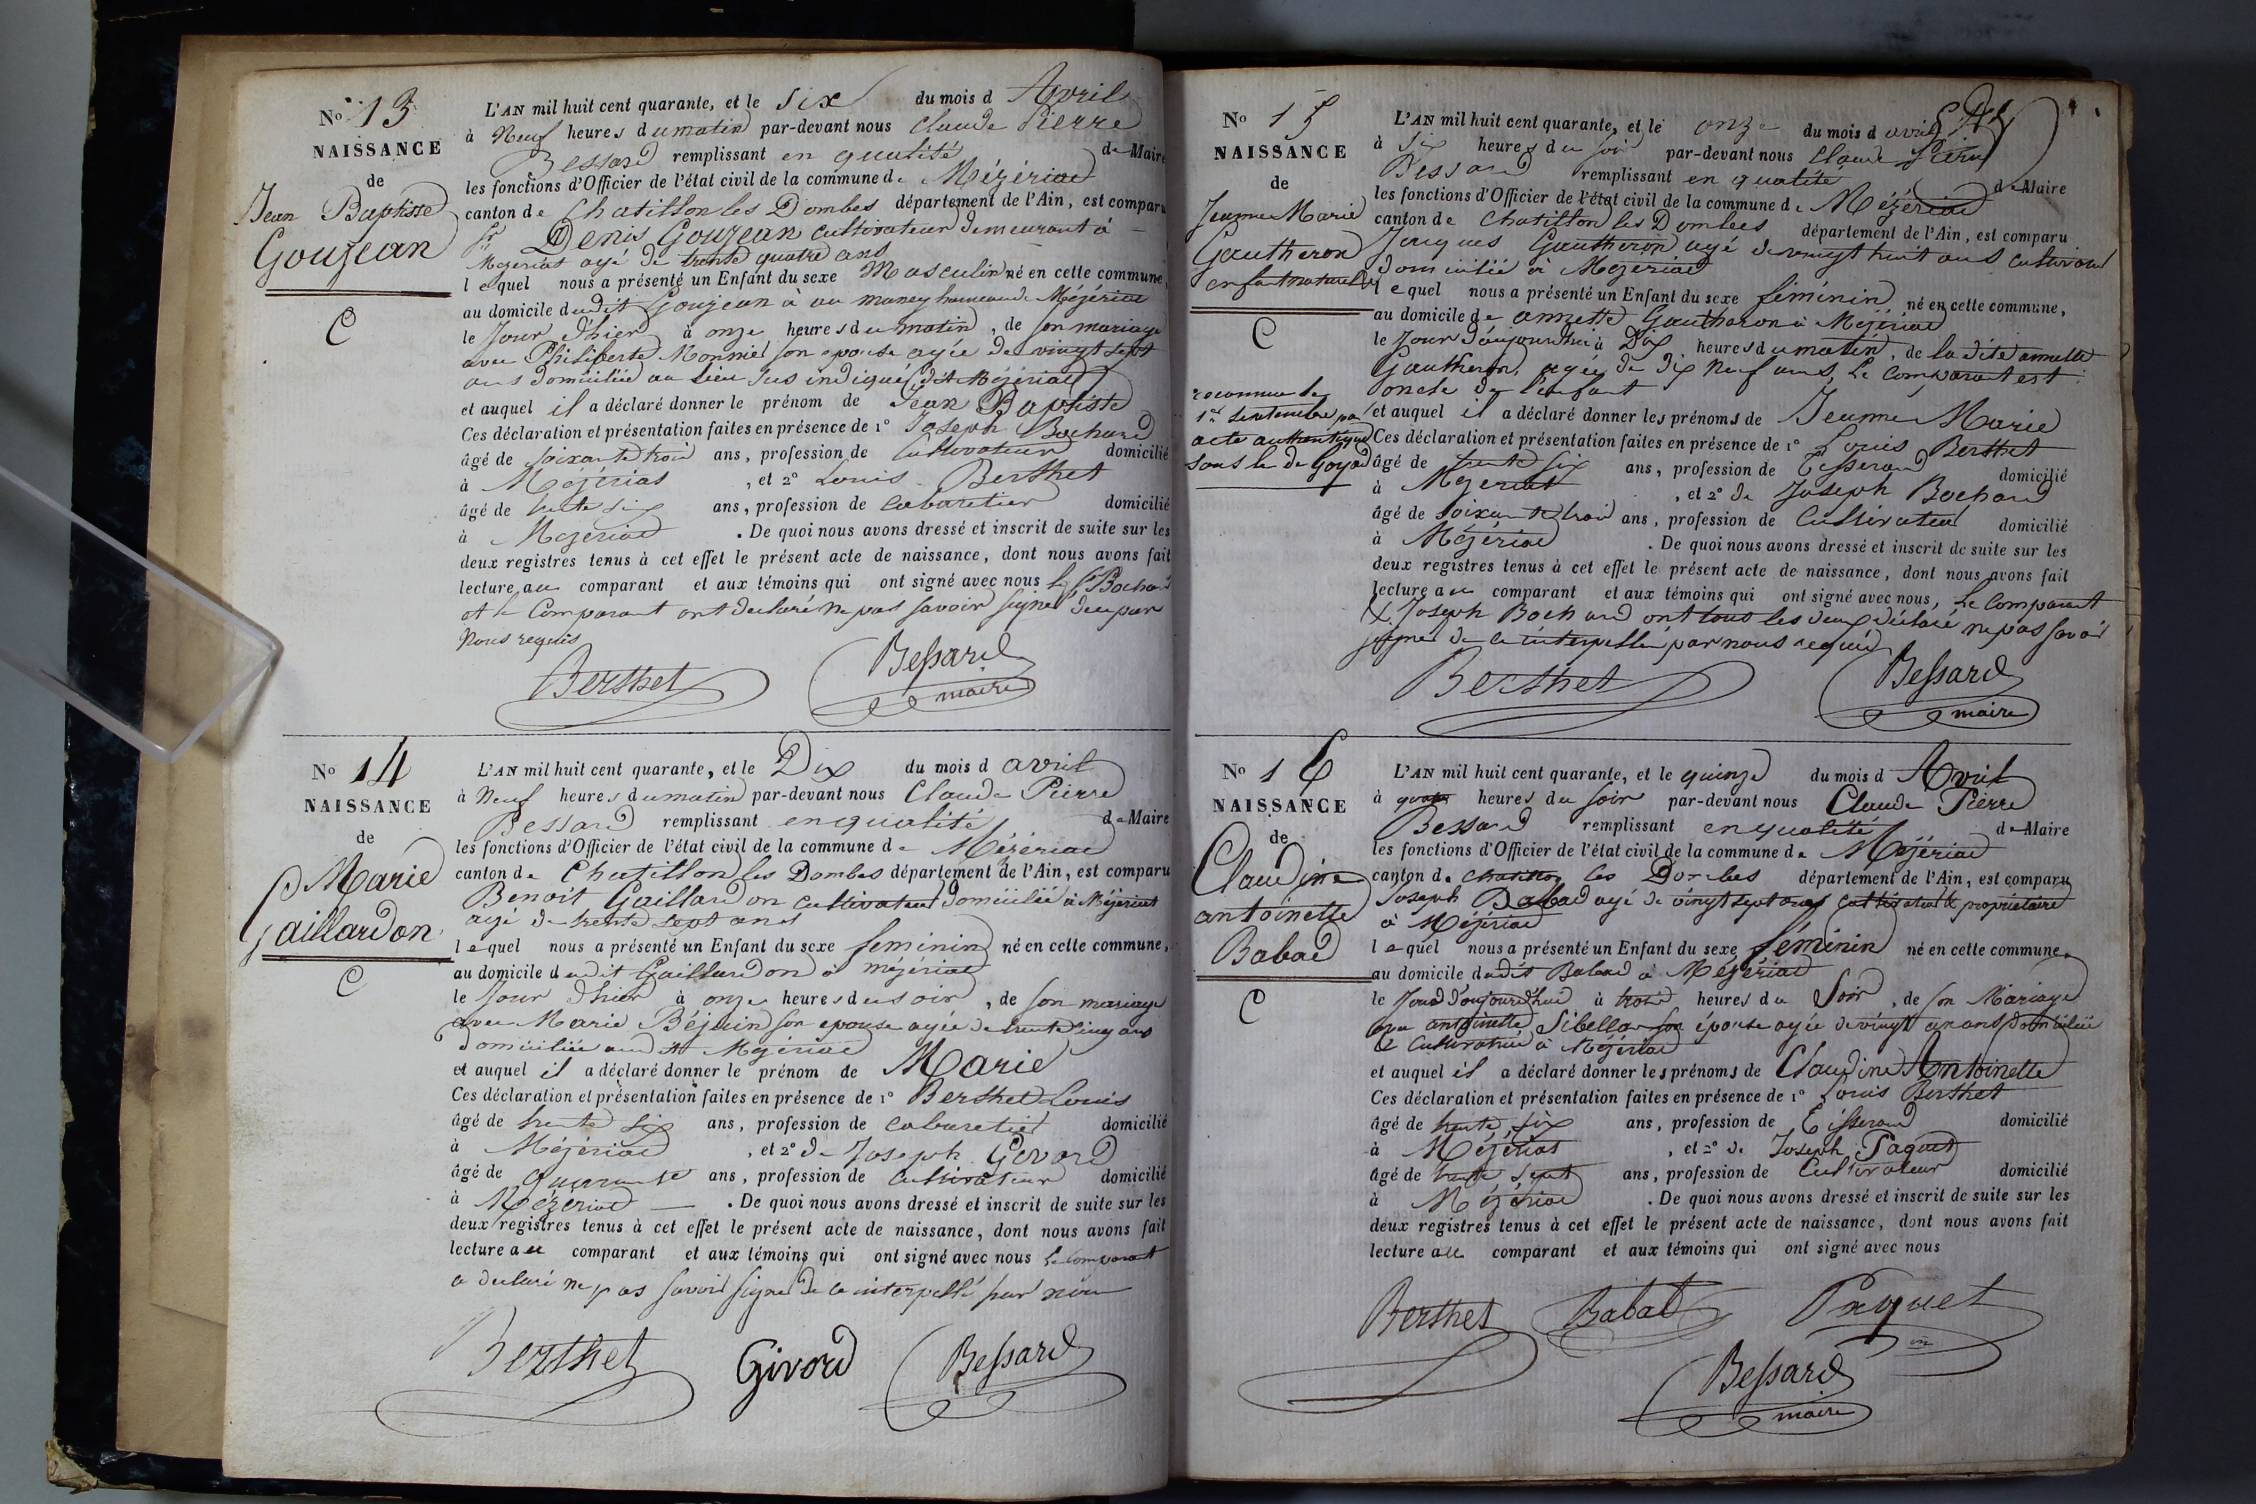 No 13
NAISSANCE
de
Jean Baptiste
Goujean
C
L'AN mil huit cent quarante, et le six du mois d Avril
à Neuf heures du matin par-devant nous Claude Pierre
Bessard remplissant en qualité de Maire
les fonctions d'Officier de l'état civil de la commune de Mézériat
canton de Chatillon les Dombes département de l'Ain, est comparu
Sr Denis Goujean cultivateur demeurant à
Mezeriat agé de trente quatre ans
lequel nous a présenté un Enfant du sexe Masculin né en cette commune,
au domicile dudit Goujean à au maney hameau de Mézériat
le Jour d'hier à onze heures du matin, de son mariage
avec Philiberte Monnier son epouse agée de vingt sept
ans domiciliée au lieu sus indiqué, dit Mézériat
et auquel il a déclaré donner le prénom de Jean Baptiste
Ces déclaration et présentation faites en présence de 1° Joseph Bochard
âgé de soixante trois ans, profession de Cultivateur domicilié
à Mézériat, et 2° Louis Berthet
âgé de trente six ans, profession de cabaretier domicilié
à Mezeriat. De quoi nous avons dressé et inscrit de suite sur les
deux registres tenus à cet effet le présent acte de naissance, dont nous avons fait
lecture au comparant et aux témoins qui ont signé avec nous le sr Bochard
et le Comparant ont declaré ne pas savoir signer de ce par
nous requis
Berthet Bessard
maire
No 14
NAISSANCE
de
Marie
Gaillardon
C
L'AN mil huit cent quarante, et le Dix du mois d avril
à Neuf heures du matin par-devant nous Claude Pierre
Bessard remplissant en qualité de Maire
les fonctions d'Officier de l'état civil de la commune de Mézériat
canton de Chatillon les Dombes département de l'Ain, est comparu
Benoit Gaillardon cultivateur domicilié à Mézériat
agé de trente sept ans
lequel nous a présenté un Enfant du sexe feminin né en cette commune,
au domicile dudit Gaillardon à mézériat
le Jour d'hier à onze heures du soir, de son mariage
avec Marie Béjuin son epouse agée de trente cinq ans
domiciliée audit Mezériat
et auquel il a déclaré donner le prénom de Marie
Ces déclaration et présentation faites en présence de 1° Berthet Louis
âgé de trente six ans, profession de cabaretier domicilié
à Mézériat, et 2° de Joseph Givord
âgé de quarante ans, profession de cultivateur domicilié
à Mézériat. De quoi nous avons dressé et inscrit de suite sur les
deux registres tenus à cet effet le présent acte de naissance, dont nous avons fait
lecture au comparant et aux témoins qui ont signé avec nous Le comparant
a declaré ne pas savoir signer de ce interpellé par nous
Berthet Givord Bessard
No 15
NAISSANCE
de
Jeanne Marie
Gautheron
enfant naturelle
C
reconnue le
1er Septembre par
acte authentique
L'AN mil huit cent quarante, et le onze du mois d avril
à six heures du soir par-devant nous Claude Pierre
Bessard remplissant en qualité de Maire
les fonctions d'Officier de l'état civil de la commune de Mézériat
canton de Chatillon les Dombes département de l'Ain, est comparu
Jacques Gautheron agé de vingt huit ans cultivateur
domicilié à Mezériat
lequel nous a présenté un Enfant du sexe féminin né en cette commune,
au domicile de annette Gautheron à Mézériat
le Jour d'aujourdhui à Dix heures du matin, de la dite annette
Gautheron, agée de dix neuf ans, Le comparant est
oncle de l'enfant
et auquel il a déclaré donner les prénoms de Jeanne Marie
Ces déclaration et présentation faites en présence de 1° Louis Berthet
âgé de trente six ans, profession de Tisserand domicilié
à Mezeriat, et 2° de Joseph Bochard
âgé de soixante trois ans, profession de Cultivateur domicilié
à Mézériat. De quoi nous avons dressé et inscrit de suite sur les
deux registres tenus à cet effet le présent acte de naissance, dont nous avons fait
lecture au comparant et aux témoins qui ont signé avec nous, Le comparant
& Joseph Bochard ont tous les deux déclaré ne pas savoir
signer de ce interpellé par nous requis
Berthet Bessard
maire
No 16
NAISSANCE
de
Claudine
antoinette
Babad
C
L'AN mil huit cent quarante, et le quinze du mois d Avril
à heures du soir par-devant nous Claude Pierre
Bessard remplissant en qualité de Maire
les fonctions d'Officier de l'état civil de la commune de Mézériat
canton de Chatillon les Dombes département de l'Ain, est comparu
Joseph Babad agé de vingt sept ans cultivateur & propriétaire
à Mézériat
lequel nous a présenté un Enfant du sexe féminin né en cette commune,
au domicile dudit Babad à Mézériat
le Jour d'aujourd'hui à trois heures du Soir, de son Mariage
avec antoinette Sibellas son épouse agée de vingt un ans domiciliée
& Cultivatrice à Mézériat
et auquel il a déclaré donner les prénoms de Claudine Antoinette
Ces déclaration et présentation faites en présence de 1° Louis Berthet
âgé de trente six ans, profession de Tisserand domicilié
à Mézériat, et 2° de Joseph Paquet
âgé de trente sept ans, profession de Cultivateur domicilié
à Mézériat. De quoi nous avons dressé et inscrit de suite sur les
deux registres tenus à cet effet le présent acte de naissance, dont nous avons fait
lecture au comparant et aux témoins qui ont signé avec nous
Berthet Babad Paquet
Bessard
maire